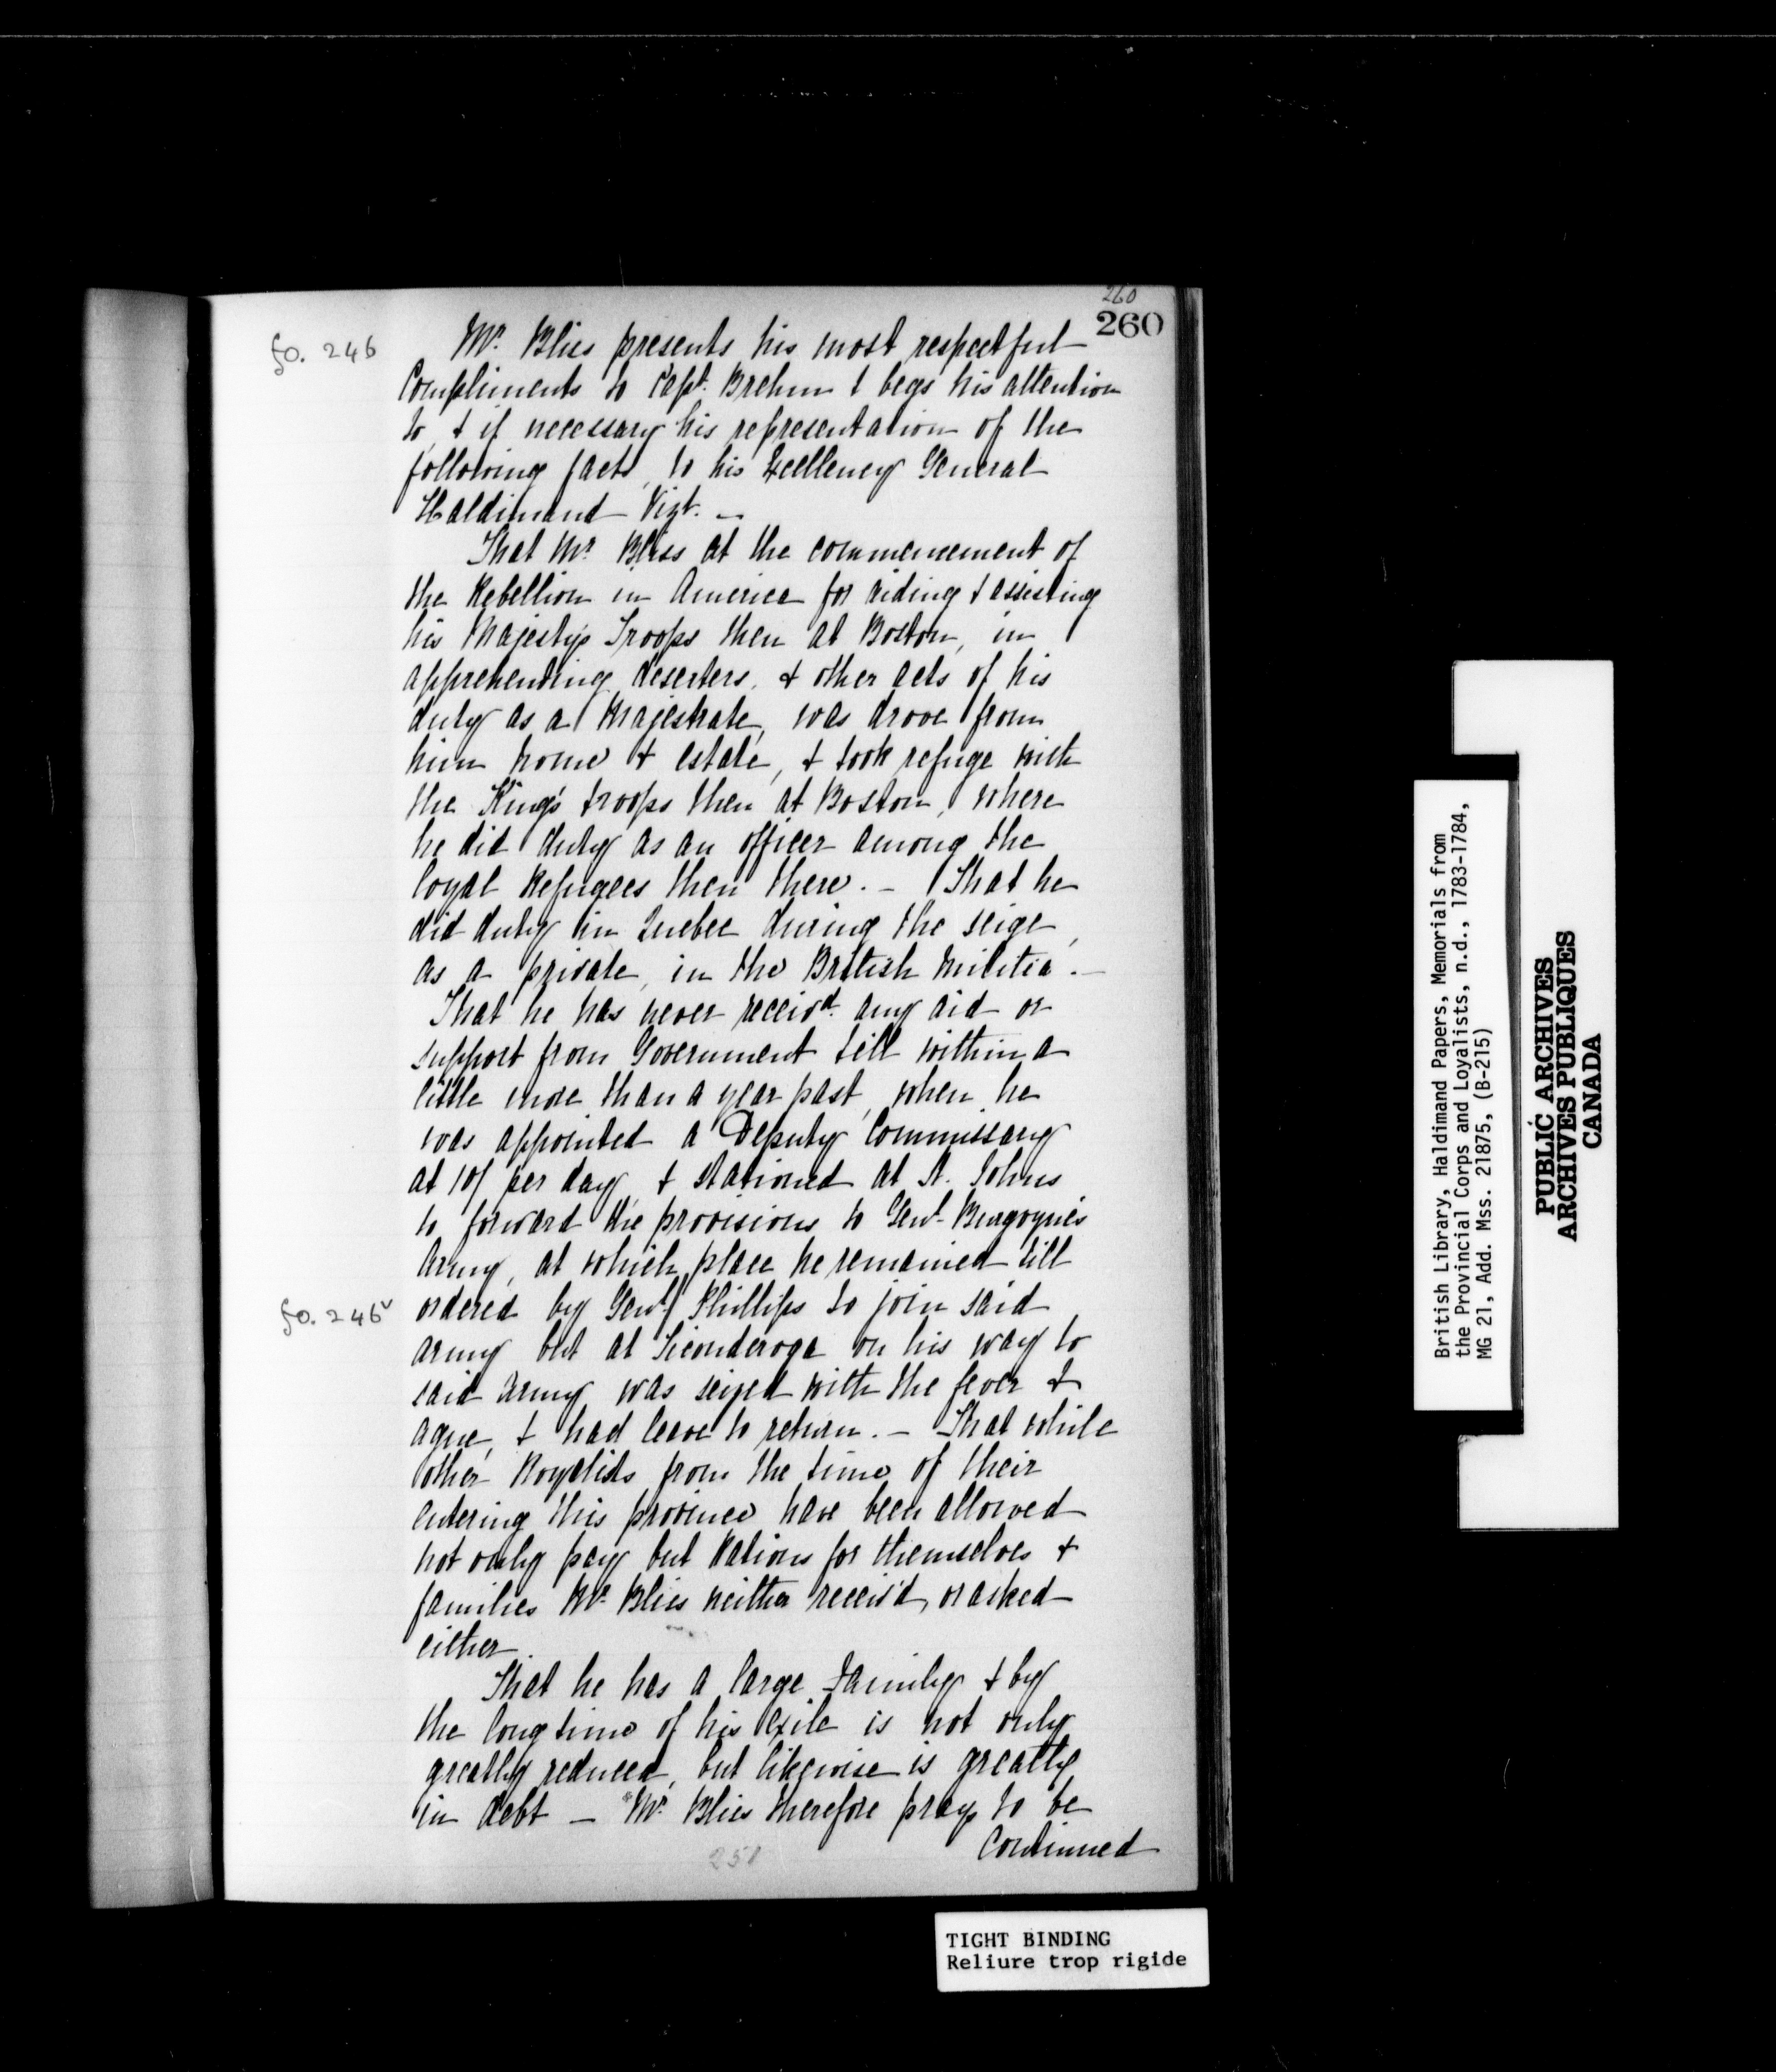 260
260
fo. 246
Mr. Bliss presents his most respectful
Compliments to Capt. Brehm & begs his attention
to, & if necessary his representation of the
following facts, to his Excellency General
Haldimand Vizt. —
That Mr. Bliss at the commencement of
the Rebellion in America for aiding & assisting
his Majesty's Troops then at Boston, in
apprehending deserters, & other acts of his
duty as a Majestrate, was drove from
him home & estate, & took refuge with
the King's troops then at Boston, where
he did duty as an officer among the
loyal Refugees then there. — That he
did duty in Quebec during the seige,
as a private, in the British Militia. —
That he has never receivd. any aid or
support from Government till within a
little more than a year past, when he
was appointed a Deputy Commissary
at 10/ per day, & stationed at St. Johns
to forward the provisions to Genl. Burgoyne's
Army, at which place he remained till
fo. 246v
ordered by Genl. Phillips to join said
army but at Ticonderoga on his way to
said Army was seized with the fever &
ague, & had leave to return. — That while
other Royalists from the time of their
entering this province have been allowed
not only pay but Rations for themselves &
families Mr. Bliss neither receiv'd, or asked
either.
That he has a large Family & by
the long time of his exile is not only
greatly reduced, but likewise is greatly
in debt — Mr. Bliss therefore prays to be
Continued
251
British Library, Haldimand Papers, Memorials from
the Provincial Corps and Loyalists, n.d., 1783-1784,
MG 21, Add. Mss. 21875, (B-215)
PUBLIC ARCHIVES
ARCHIVES PUBLIQUES
CANADA
TIGHT BINDING
Reliure trop rigide